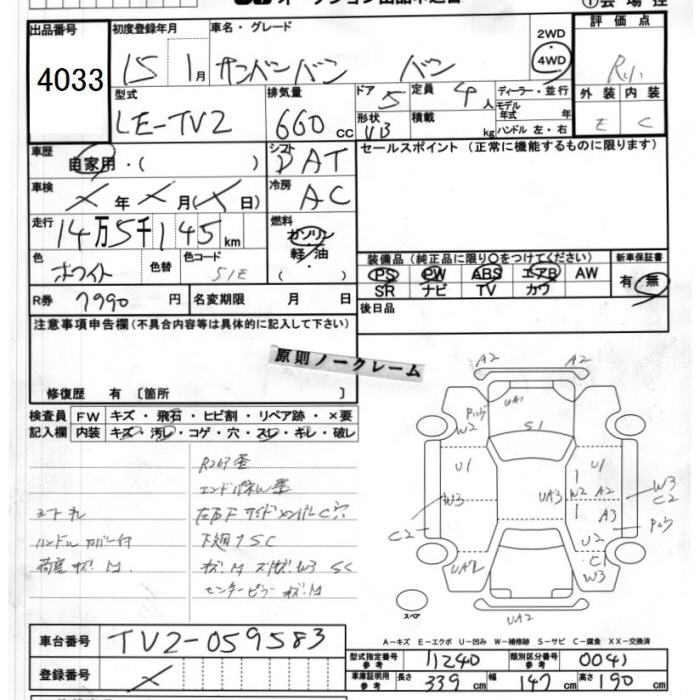 出品番号
4033
初度登録年月
15 1月
車名・グレード
サンバーバン バン
2WD
4WD
評価点
外装 内装
E C
型式
LE-TV2
排気量
660 cc
ドア 5
形状 VB
定員 4人
積載 kg
ディーラー・並行
モデル年式 年
ハンドル 左・右
車歴
自家用・( )
シフト
DAT
セールスポイント (正常に機能するものに限ります)
車検
× 年 × 月 (× 日)
冷房
AC
走行
14万5千145 km
燃料
ガソリン
軽・油
( )
色
ホワイト
色替
色コード
51E
装備品 (純正品に限り○をつけてください)
PS PW ABS エアB AW
SR ナビ TV カワ
新車保証書
有・無
R券 7990 円
名変期限 月 日
後日品
注意事項申告欄(不具合内容等は具体的に記入して下さい)
原則ノークレーム
修復歴 有 [箇所 ]
検査員記入欄
FW キズ・飛石・ヒビ割・リペア跡・×要
内装 キズ・汚レ・コゲ・穴・スレ・キレ・破レ
シートキレ
ハンドルカバー付
荷室キズM
下廻りSC
センターピラーキズM
A2 A2
UA1
S1
W2
U1 U1
W3 UA3 W2 A2 W3
C2
A3
C2 U2
C1
UA2 W3
UA2
スペア
A−キズ E−エクボ U−凹み W−補修跡 S−サビ C−腐食 XX−交換済
車台番号 TV2-059583
登録番号 ×
型式指定番号 参考 11240
類別区分番号 参考 0041
車庫証明用 参考 長さ 339 cm 幅 147 cm 高さ 190 cm